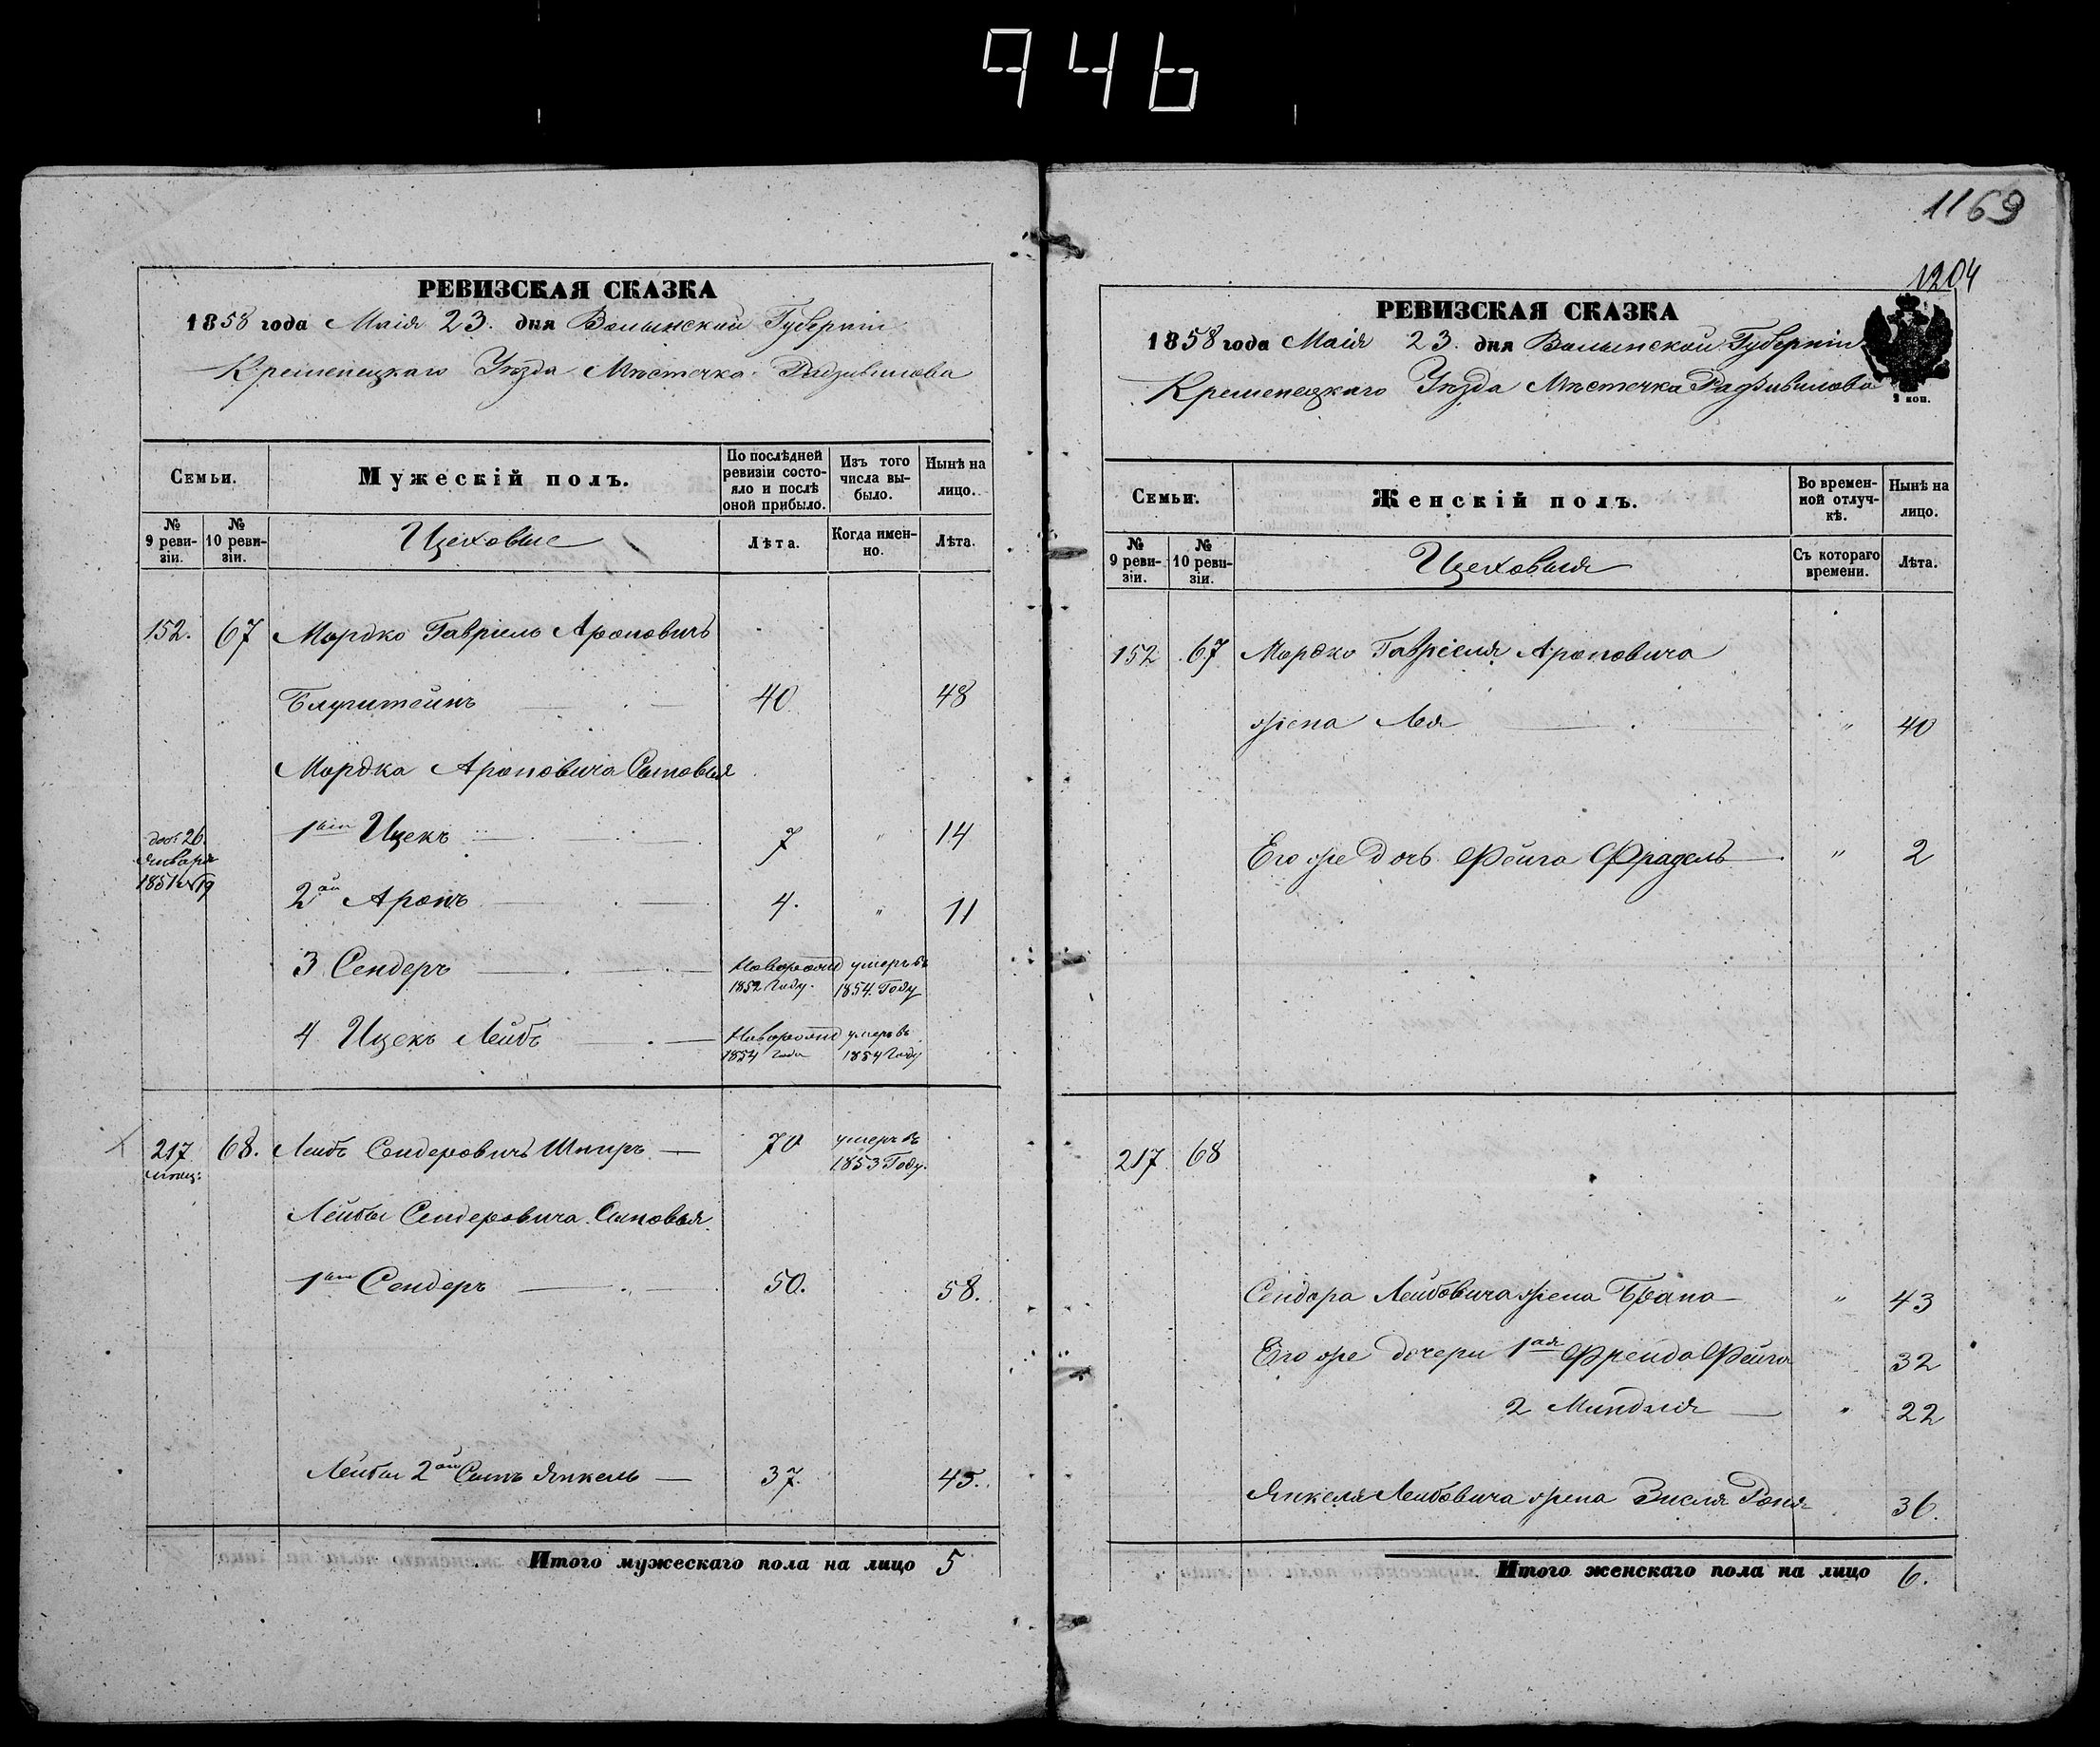 946
РЕВИЗСКАЯ СКАЗКА
1858 года Маія 23. дня Волынской Губерніи
Кременецкаго Уѣзда Мѣстечка Радзивилова
Семьи.
Мужескій полъ.
По послѣдней ревизіи состояло и послѣ оной прибыло.
Изъ того числа выбыло.
Нынѣ на лицо.
№ 9 ревизіи.
№ 10 ревизіи.
Цеховые
Лѣта.
Когда именно.
Лѣта.
152. 67 Мордко Гавріель Ароновичъ
40 48
Мордка Ароновича Сыновья
1ый Ицекъ 7 " 14
26 Января
1851
2ой Аронъ 4. " 11
3 Сендеръ Новорожд умеръ въ
1852 Году. 1854 Году
4 Ицекъ Лейбъ Новорожд умеръ въ
1854 Года 1854 Году
217 68. Лейбъ Сендеровичъ Шпиръ 70 умеръ въ
1853 Году.
Лейбы Сендеровича Сыновья.
1ый Сендеръ 50. 58.
Лейбы 2ой Сынъ Янкель 37. 45.
Итого мужескаго пола на лицо 5
1169
1204
РЕВИЗСКАЯ СКАЗКА
1858 года Маія 23. дня Волынской Губерніи
Кременецкаго Уѣзда Мѣстечка Радзивилова
2 коп.
Семьи.
Женскій полъ.
Во временной отлучкѣ.
Нынѣ на лицо.
№ 9 ревизіи.
№ 10 ревизіи.
Цеховыя
Съ котораго времени.
Лѣта.
152 67 Мордко Гавріеля Ароновича
жена Лея " 40
Его же дочь Фейга Фрадель " 2
217 68
Сендора Лейбовича жена Брана " 43
Его же дочери 1ая Фрейда Фейга 32
2 Миндля " 22
Янкеля Лейбовича жена Зисля 36.
Итого женскаго пола на лицо 6.